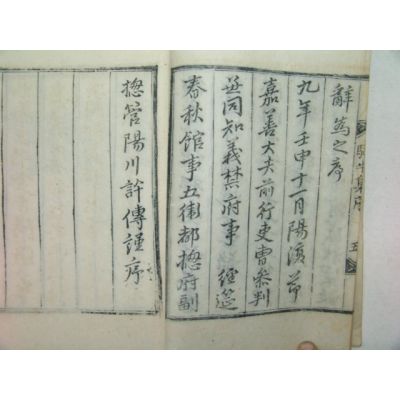 騎牛集序 五
辭為之序
九年壬申十一月陽復節
嘉善大夫前行吏曹叅判
兼同知義禁府事 經筵
春秋館事五衛都摠府副
摠管陽川許傳謹序